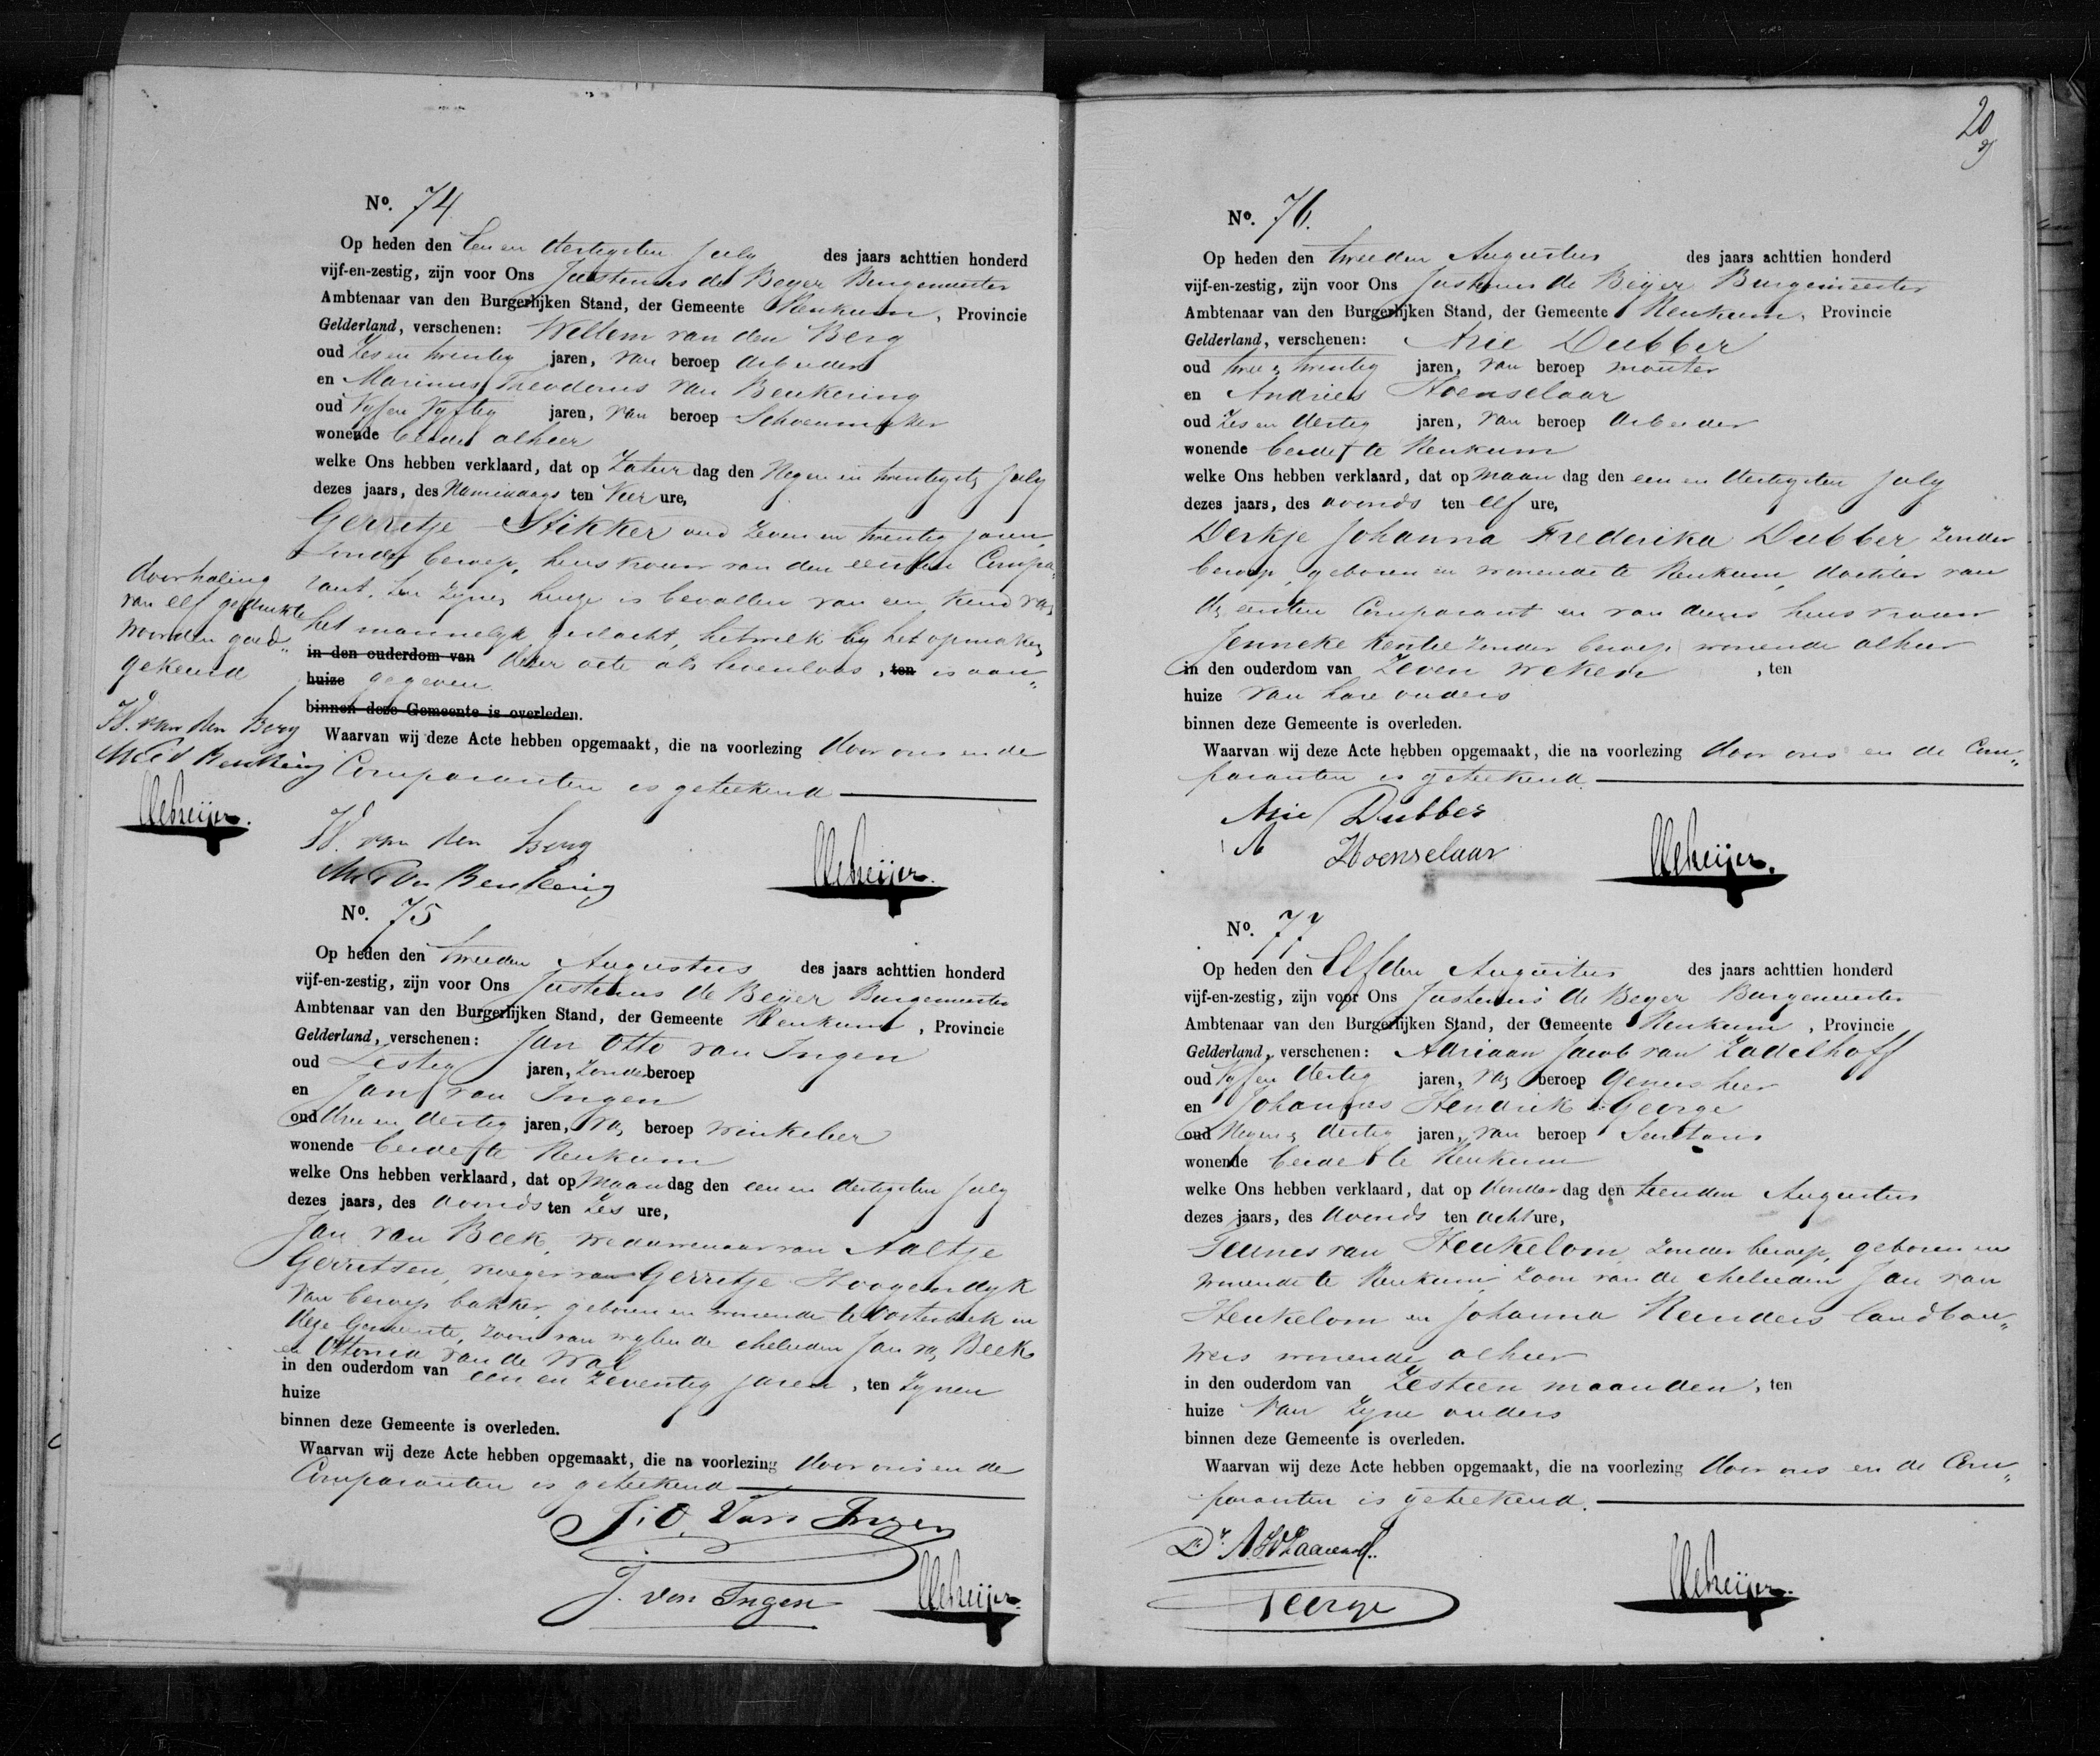 No. 74
Op heden den Een en dertigsten July des jaars achttien honderd
vijf-en-zestig, zijn voor Ons Justinus de Beijer Burgemeester
Ambtenaar van den Burgerlijken Stand, der Gemeente Renkum, Provincie
Gelderland, verschenen: Willem van den Berg
oud Zes en twintig jaren, van beroep arbeider
en Marinus Theodorus van Beukering
oud Vyf en Vyftig jaren, van beroep Schoenmaker
wonende beide alhier
welke Ons hebben verklaard, dat op Zaturdag den Negen en twintigste July
dezes jaars, des Namiddags ten Vier ure,
Gerritje Stikker oud Zeven en twintig jaren,
zonder beroep, huisvrouw van den eersten Compa„
rant, ten zynen huize is bevallen van een kind van
het mannelyk geslacht, hetwelk by het opmaken
in den ouderdom van dezer acte als levenloos, ten is aan„
huize gegeven.
binnen deze Gemeente is overleden.
Waarvan wij deze Acte hebben opgemaakt, die na voorlezing door ons en de
Comparanten is geteekend
doorhaling
van elf gedrukte
woorden goed„
gekeurd
W. van den Berg
M T V Beukering
deBeijer.
W. van den Berg
M T Vn Beukering
deBeijer.
No. 75
Op heden den tweeden Augustus des jaars achttien honderd
vijf-en-zestig, zijn voor Ons Justinus de Beijer Burgemeester
Ambtenaar van den Burgerlijken Stand, der Gemeente Renkum, Provincie
Gelderland, verschenen: Jan Otto van Ingen
oud Zestig jaren, Zonder beroep
en Jan van Ingen
oud drie en dertig jaren, van beroep winkelier
wonende beide te Renkum
welke Ons hebben verklaard, dat op Maandag den een en dertigsten July
dezes jaars, des avonds ten Zes ure,
Jan van Beek, weduwenaar van Aaltje
Gerritsen, vroeger van Gerritje Hoogendyk
van beroep bakker, geboren en wonende te Oosterbeek in
deze Gemeente, zoon van wylen de ehelieden Jan van Beek
en Ottonia van de Wal
in den ouderdom van een en zeventig jaren, ten zynen
huize
binnen deze Gemeente is overleden.
Waarvan wij deze Acte hebben opgemaakt, die na voorlezing door ons en de
Comparanten is geteekend
J. O. Van Ingen
J. van Ingen
deBeijer.
20
No. 76.
Op heden den tweeden Augustus des jaars achttien honderd
vijf-en-zestig, zijn voor Ons Justinus de Beijer Burgemeester
Ambtenaar van den Burgerlijken Stand, der Gemeente Renkum, Provincie
Gelderland, verschenen: Arie Dubber
oud twee en twintig jaren, van beroep
en Andries Hoenselaar
oud Zes en dertig jaren, van beroep arbeider
wonende beide te Renkum
welke Ons hebben verklaard, dat op maandag den een en dertigsten July
dezes jaars, des avonds ten elf ure,
Derkje Johanna Frederika Dubber, zonder
beroep, geboren en wonende te Renkum, dochter van
den eersten Comparant en van diens huisvrouw
Jenneke Rentie zonder beroep wonende alhier
in den ouderdom van Zeven weken, ten
huize van hare ouders
binnen deze Gemeente is overleden.
Waarvan wij deze Acte hebben opgemaakt, die na voorlezing door ons en de Com„
paranten is geteekend.
Arie Dubber
A Hoenselaar
deBeijer.
No. 77
Op heden den Elfden Augustus des jaars achttien honderd
vijf-en-zestig, zijn voor Ons Justinus de Beyer Burgemeester
Ambtenaar van den Burgerlijken Stand, der Gemeente Renkum, Provincie
Gelderland, verschenen: Adriaan Jacob van Zadelhoff
oud Vyf en dertig jaren, van beroep Geneesheer
en Johannes Hendrik George
oud Negen en dertig jaren, van beroep
wonende beide te Renkum
welke Ons hebben verklaard, dat op donderdag den tienden Augustus
dezes jaars, des avonds ten acht ure,
Teunes van Heukelom, zonder beroep, geboren en
wonende te Renkum, zoon van de ehelieden Jan van
Heukelom en Johanna Reinders landbou„
wers wonende alhier
in den ouderdom van Zestien maanden, ten
huize van zyne ouders
binnen deze Gemeente is overleden.
Waarvan wij deze Acte hebben opgemaakt, die na voorlezing door ons en de Com„
paranten is geteekend.
George
deBeijer.